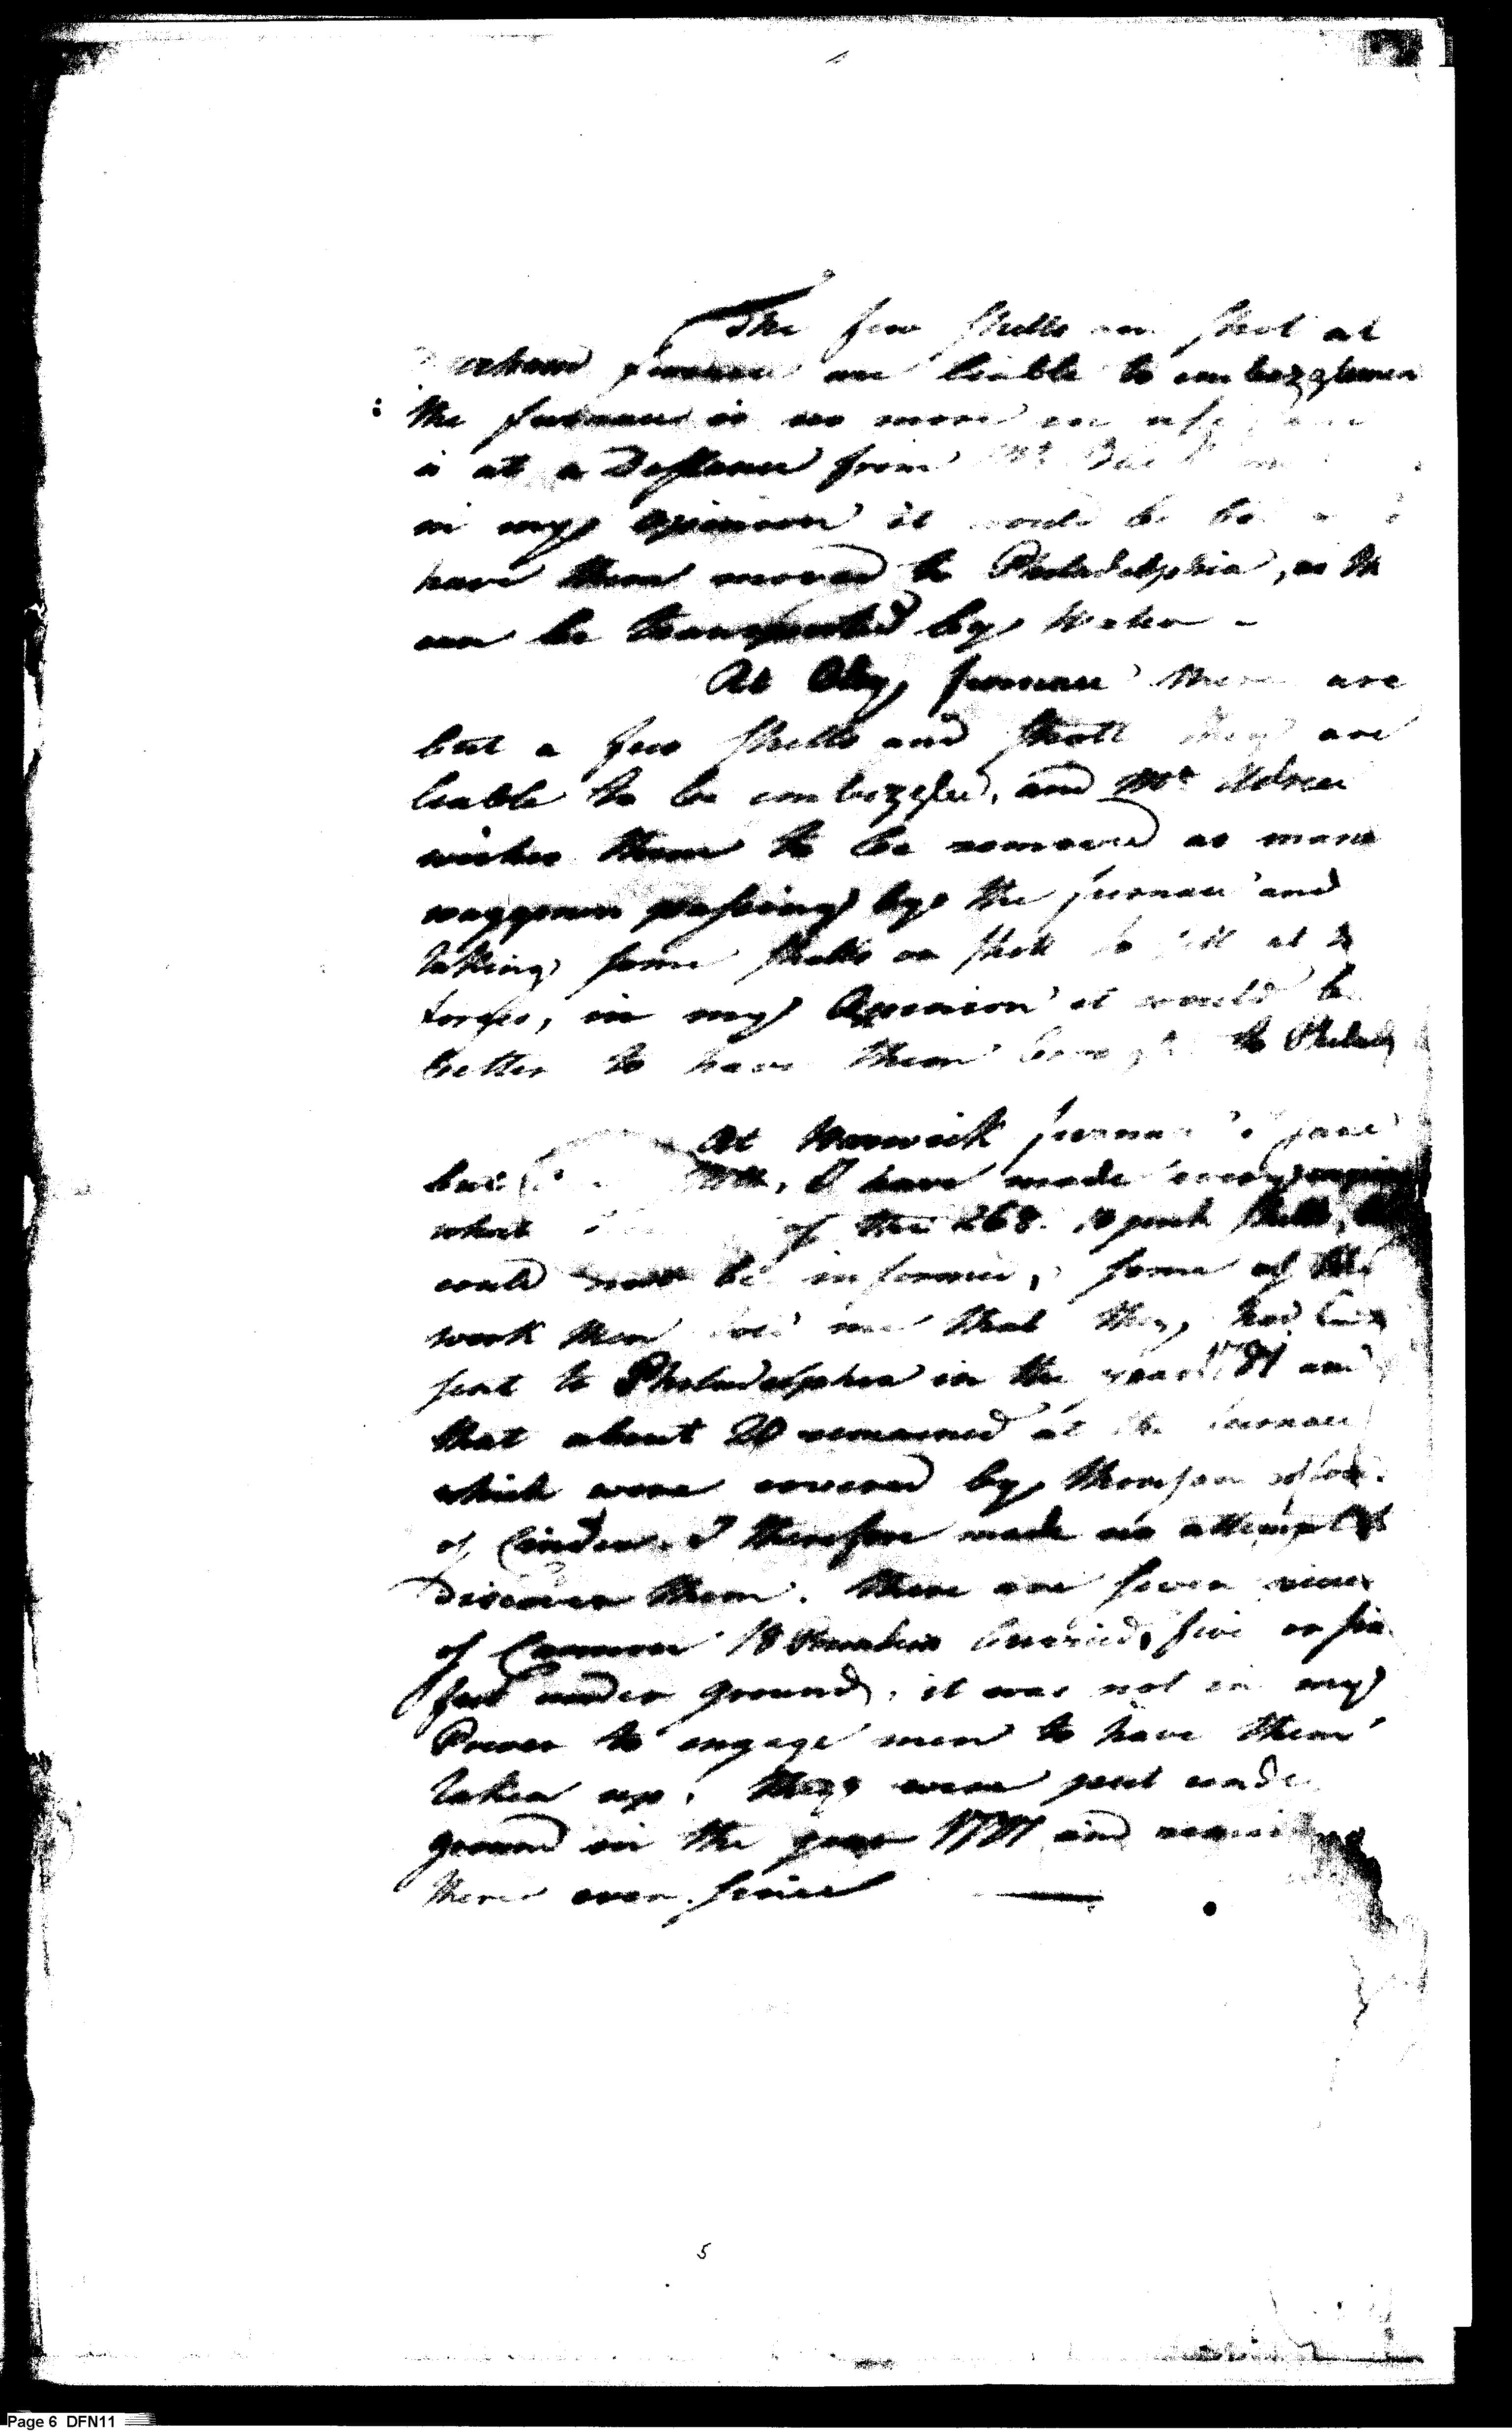 The few Shells and Shot at
Durham furnace are liable to embezzlemen
the furnace is no more in use and
is at a Distance from Mr
in my Opinion it would be be
have them moved to Philadelphia, as th
can be transported by Water -
At Oley furnace there are
but a few Shells and Shott they are
liable to be embezzled, and Mr Udree
wishes them to be removed as many
waggoners passing by the furnace and
taking some Shells or Shott to sell at the
forges, in my Opinion it would be
better to have them brought to Philad
At Warwick furnace I found
but Shott, I have made every enquiry
what of the 268. 10 inch Shells, but
could not be informed, some of the
work Men told me that they had been
sent to Philadelphia in the year 1781 and
that about 20 remained at the furnace
which were covered by thousan of loads
of Cinder. I therefore made no attempt to
discover them. there are seven pieces
of Cannon 18 Pounders burried, five or six
feet under ground, it was not in my
Power to engage men to have them
taken up. they were put unde
ground in the year 1777 and remained
there ever since
5
Page 6 DFN11